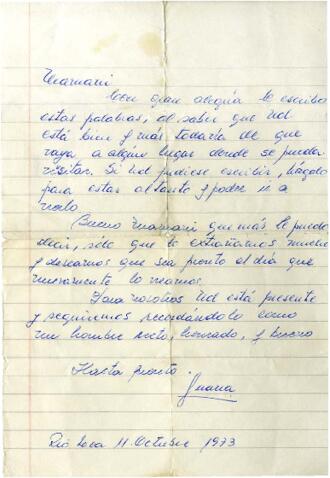 Mamani
Con gran alegría le escribo
estas palabras, al saber que Ud
está bien y más todavía de que
vaya a algún lugar donde se pueda
visitar. Si Ud pudiese escribir, hágalo
para estar al tanto y poder ir a
verlo
Bueno Mamani que más le puedo
decir, sólo que le extrañamos mucho
y deseamos que sea pronto el día que
nuevamente lo veamos.
Para nosotros Ud está presente
y seguiremos recordándolo como
un hombre recto, honrado, y bueno
Hasta pronto.
Juana
Río Loa 11. Octubre 1973